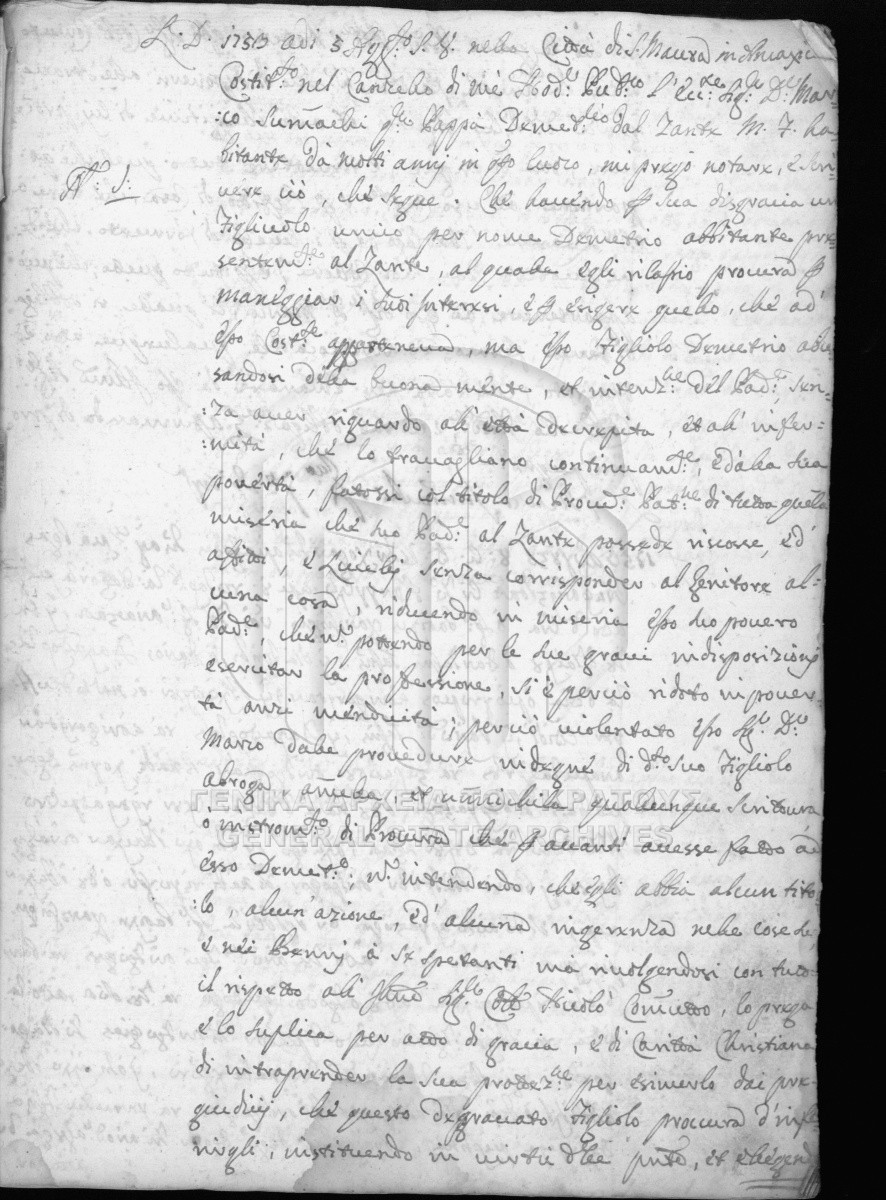 L. D. 1753 adi 3 Agg:to S. V. nella Città di S. Maura in
Costit:to nel Cancello di me Nod:o Pub:co l'Ecc:te Sig:r D:r Mar-
:co Sumachi q:m Pappà Demet:rio dal Zante M. F. ha-
bitante da molti annj in q:to luoco, mi pregò notare, e scri-
vere ciò, che segue. Che havendo p sua disgracia un
N:o 1:
Figliuolo unico per nome Demetrio abbitante pre-
sentem:te al Zante, al quale egli rilassiò procura p
maneggiar i suoi Interessi, e p esigere quello, che ad
esso Cost:te apparteneva, ma esso Figliolo Demetrio abu-
sandosi della buona mente, et intenz:ne del Pad:e, sen-
:za aver riguardo all'età decrepita, et all'infer-
:mità, che lo travagliano continuam:te, e dalla sua
povertà, fatossi col titolo di Procu:a Pat:ne di tutta quella
miseria che suo Pad:e al Zante possede riscosse, ed
affitti, e Livellj senza corrisponder al Genitore al-
cuna cosa, riducendo in miseria esso suo povero
Pad:e, che n:n potendo per le sue gravi indisposizionj
esercitar la professione, si è perciò ridoto in pover-
tà anzi mendicità; perciò violentato esso Sig:r D:r
Marco dalle procedure indegne di d:to suo Figliolo
abroga, annulla et annichila qualunque scrittura
o instrom:to di Procura che p avanti avesse fatto ad
esso Demet:o. N:n intendendo, che egli abbia alcun tito-
:lo, alcun'azione, ed alcuna ingerenza nelle cose sue,
e nei Bennj à se spetanti mà rivolgendosi con tuto
il rispetto all' Ill:mo Sig:r Co: Nicolò Cometto, lo prega
e lo suplica per atto di gracia, e di Carità Christiana
di intraprender la sua protez:ne per esimerlo dai pre-
giudicij, che questo degravato Figliolo proccura d'infe-
rirgli, instituendo in virtù del p:nte, et ellegend
ΓΕΝΙΚΑ ΑΡΧΕΙΑ ΤΟΥ ΚΡΑΤΟΥΣ
GENERAL STATE ARCHIVES